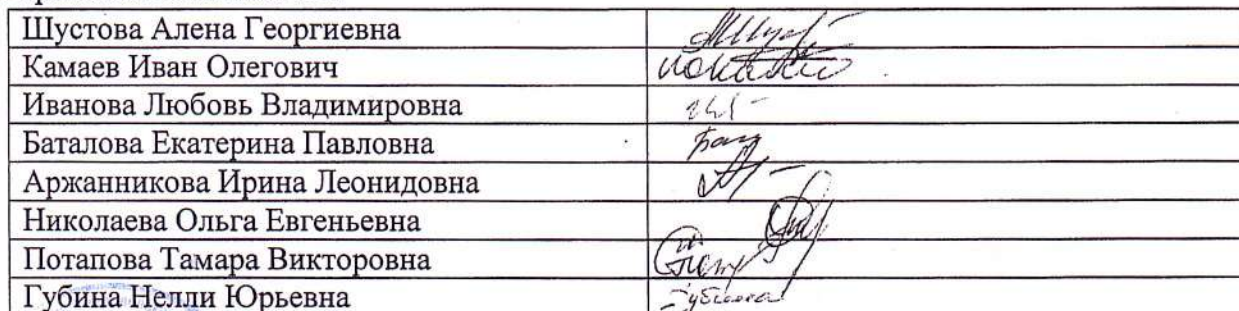 Шустова Алена Георгиевна
Камаев Иван Олегович
Иванова Любовь Владимировна
Баталова Екатерина Павловна
Аржанникова Ирина Леонидовна
Николаева Ольга Евгеньевна
Потапова Тамара Викторовна
Губина Нелли Юрьевна